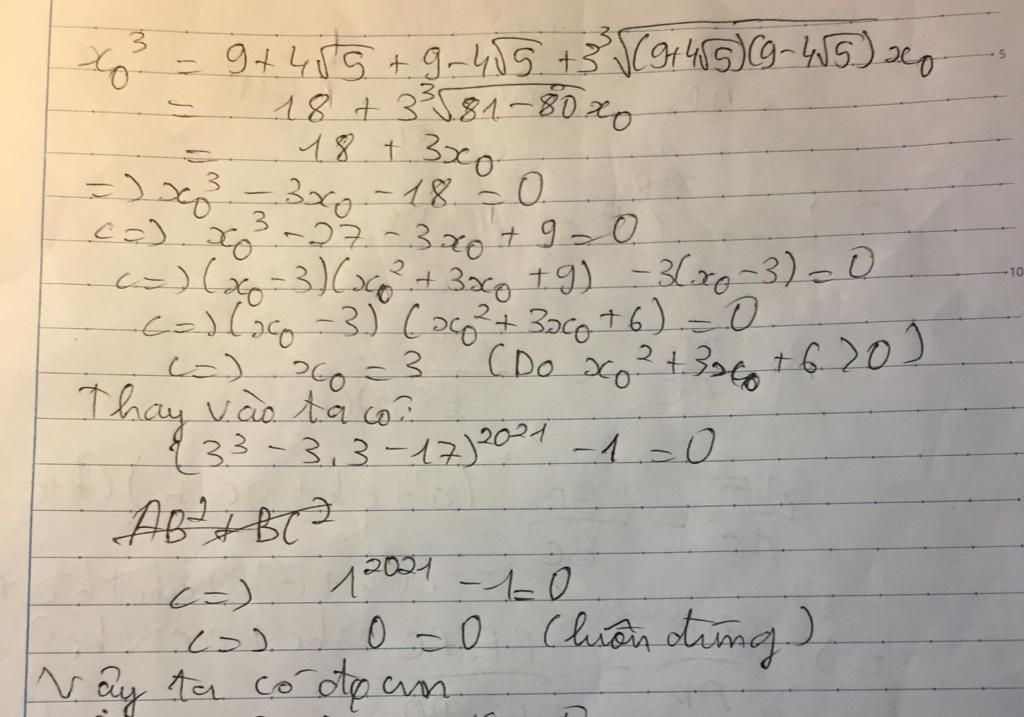 x₀³ = 9+4√5 + 9-4√5 + 3∛((9+4√5)(9-4√5)) x₀
= 18 + 3∛(81-80) x₀
= 18 + 3x₀
=) x₀³ - 3x₀ - 18 = 0
<=) x₀³ - 27 - 3x₀ + 9 = 0
<=) (x₀-3)(x₀² + 3x₀ + 9) - 3(x₀-3) = 0
<=) (x₀-3) (x₀² + 3x₀ + 6) = 0
<=) x₀ = 3 (Do x₀² + 3x₀ + 6 > 0)
Thay vào ta có:
(3³ - 3.3 - 17)²⁰²¹ - 1 = 0
AB² + BC²
<=) 1²⁰²¹ - 1 = 0
<=) 0 = 0 (luôn đúng)
Vậy ta có đpcm